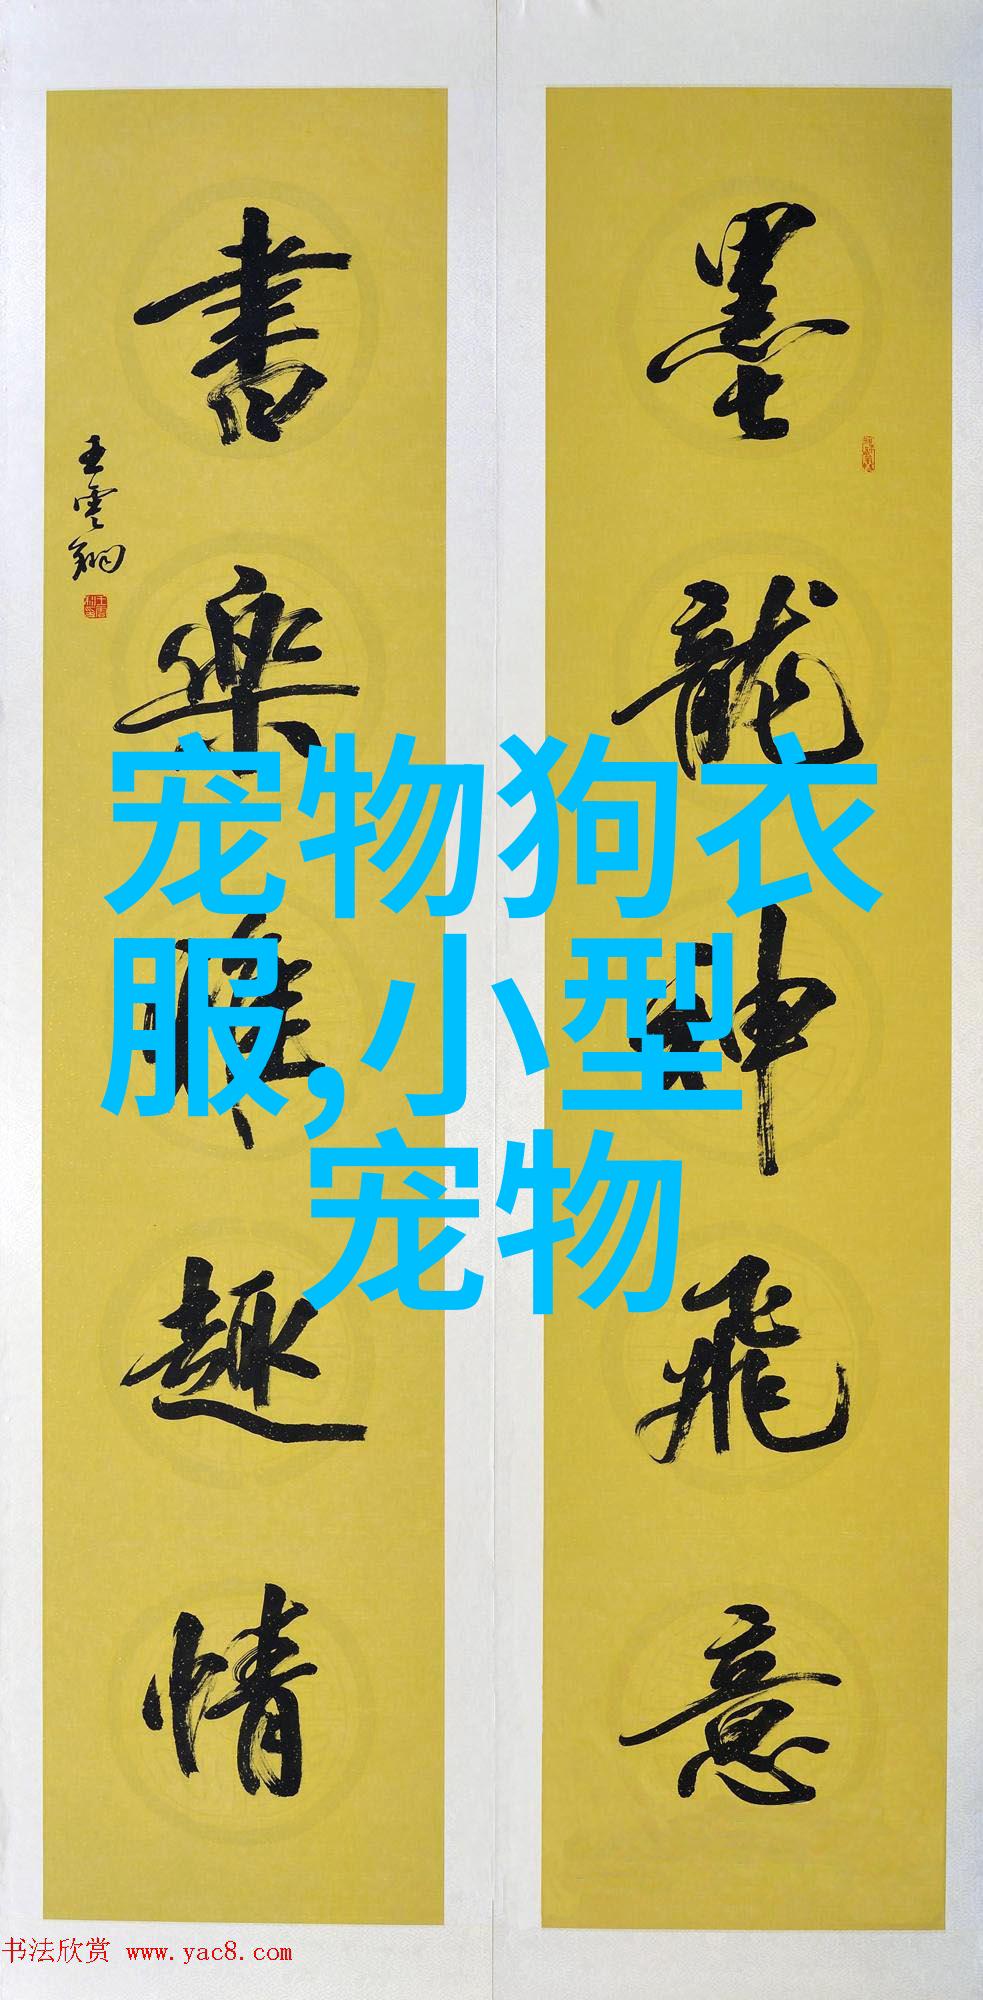 墨龍神飛意
書楽趣情
王雲翔
宠物狗衣
服,小型
宠物
书法欣赏 www.yac8.com